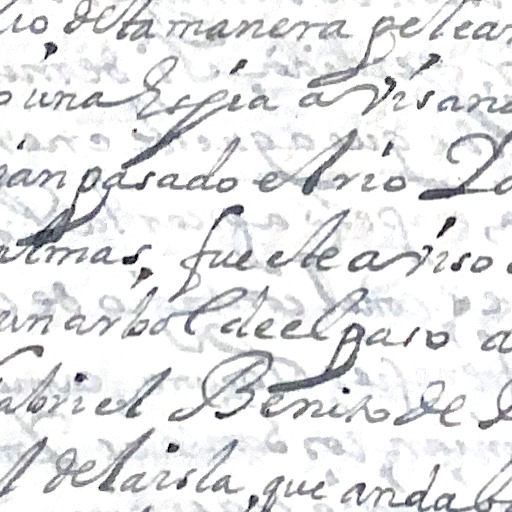 dela manera pelear
una Espia avisand
pasado el rio
almas, fue ele aviso
un arbol de el paso a
Gabriel Benito de
de la isla, que andab